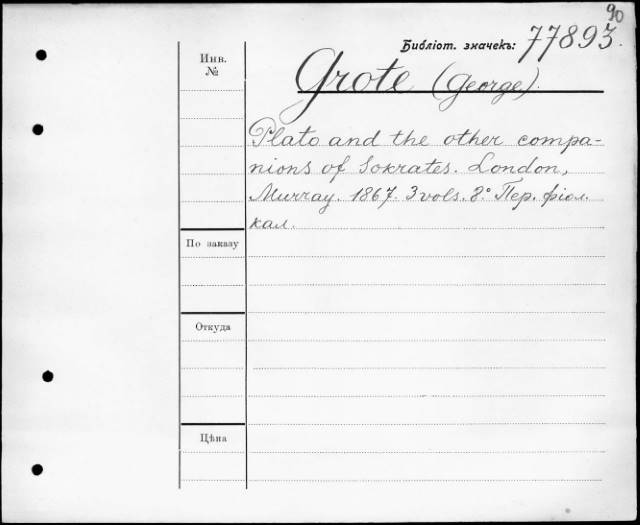 90
Библіот. значекъ: 77893.
Инв.
№
Grote (George).
Plato and the other compa-
nions of Sokrates. London,
Murray. 1867. 3 vols. 8° Пер. фіол.
кал.
По заказу
Откуда
Цѣна